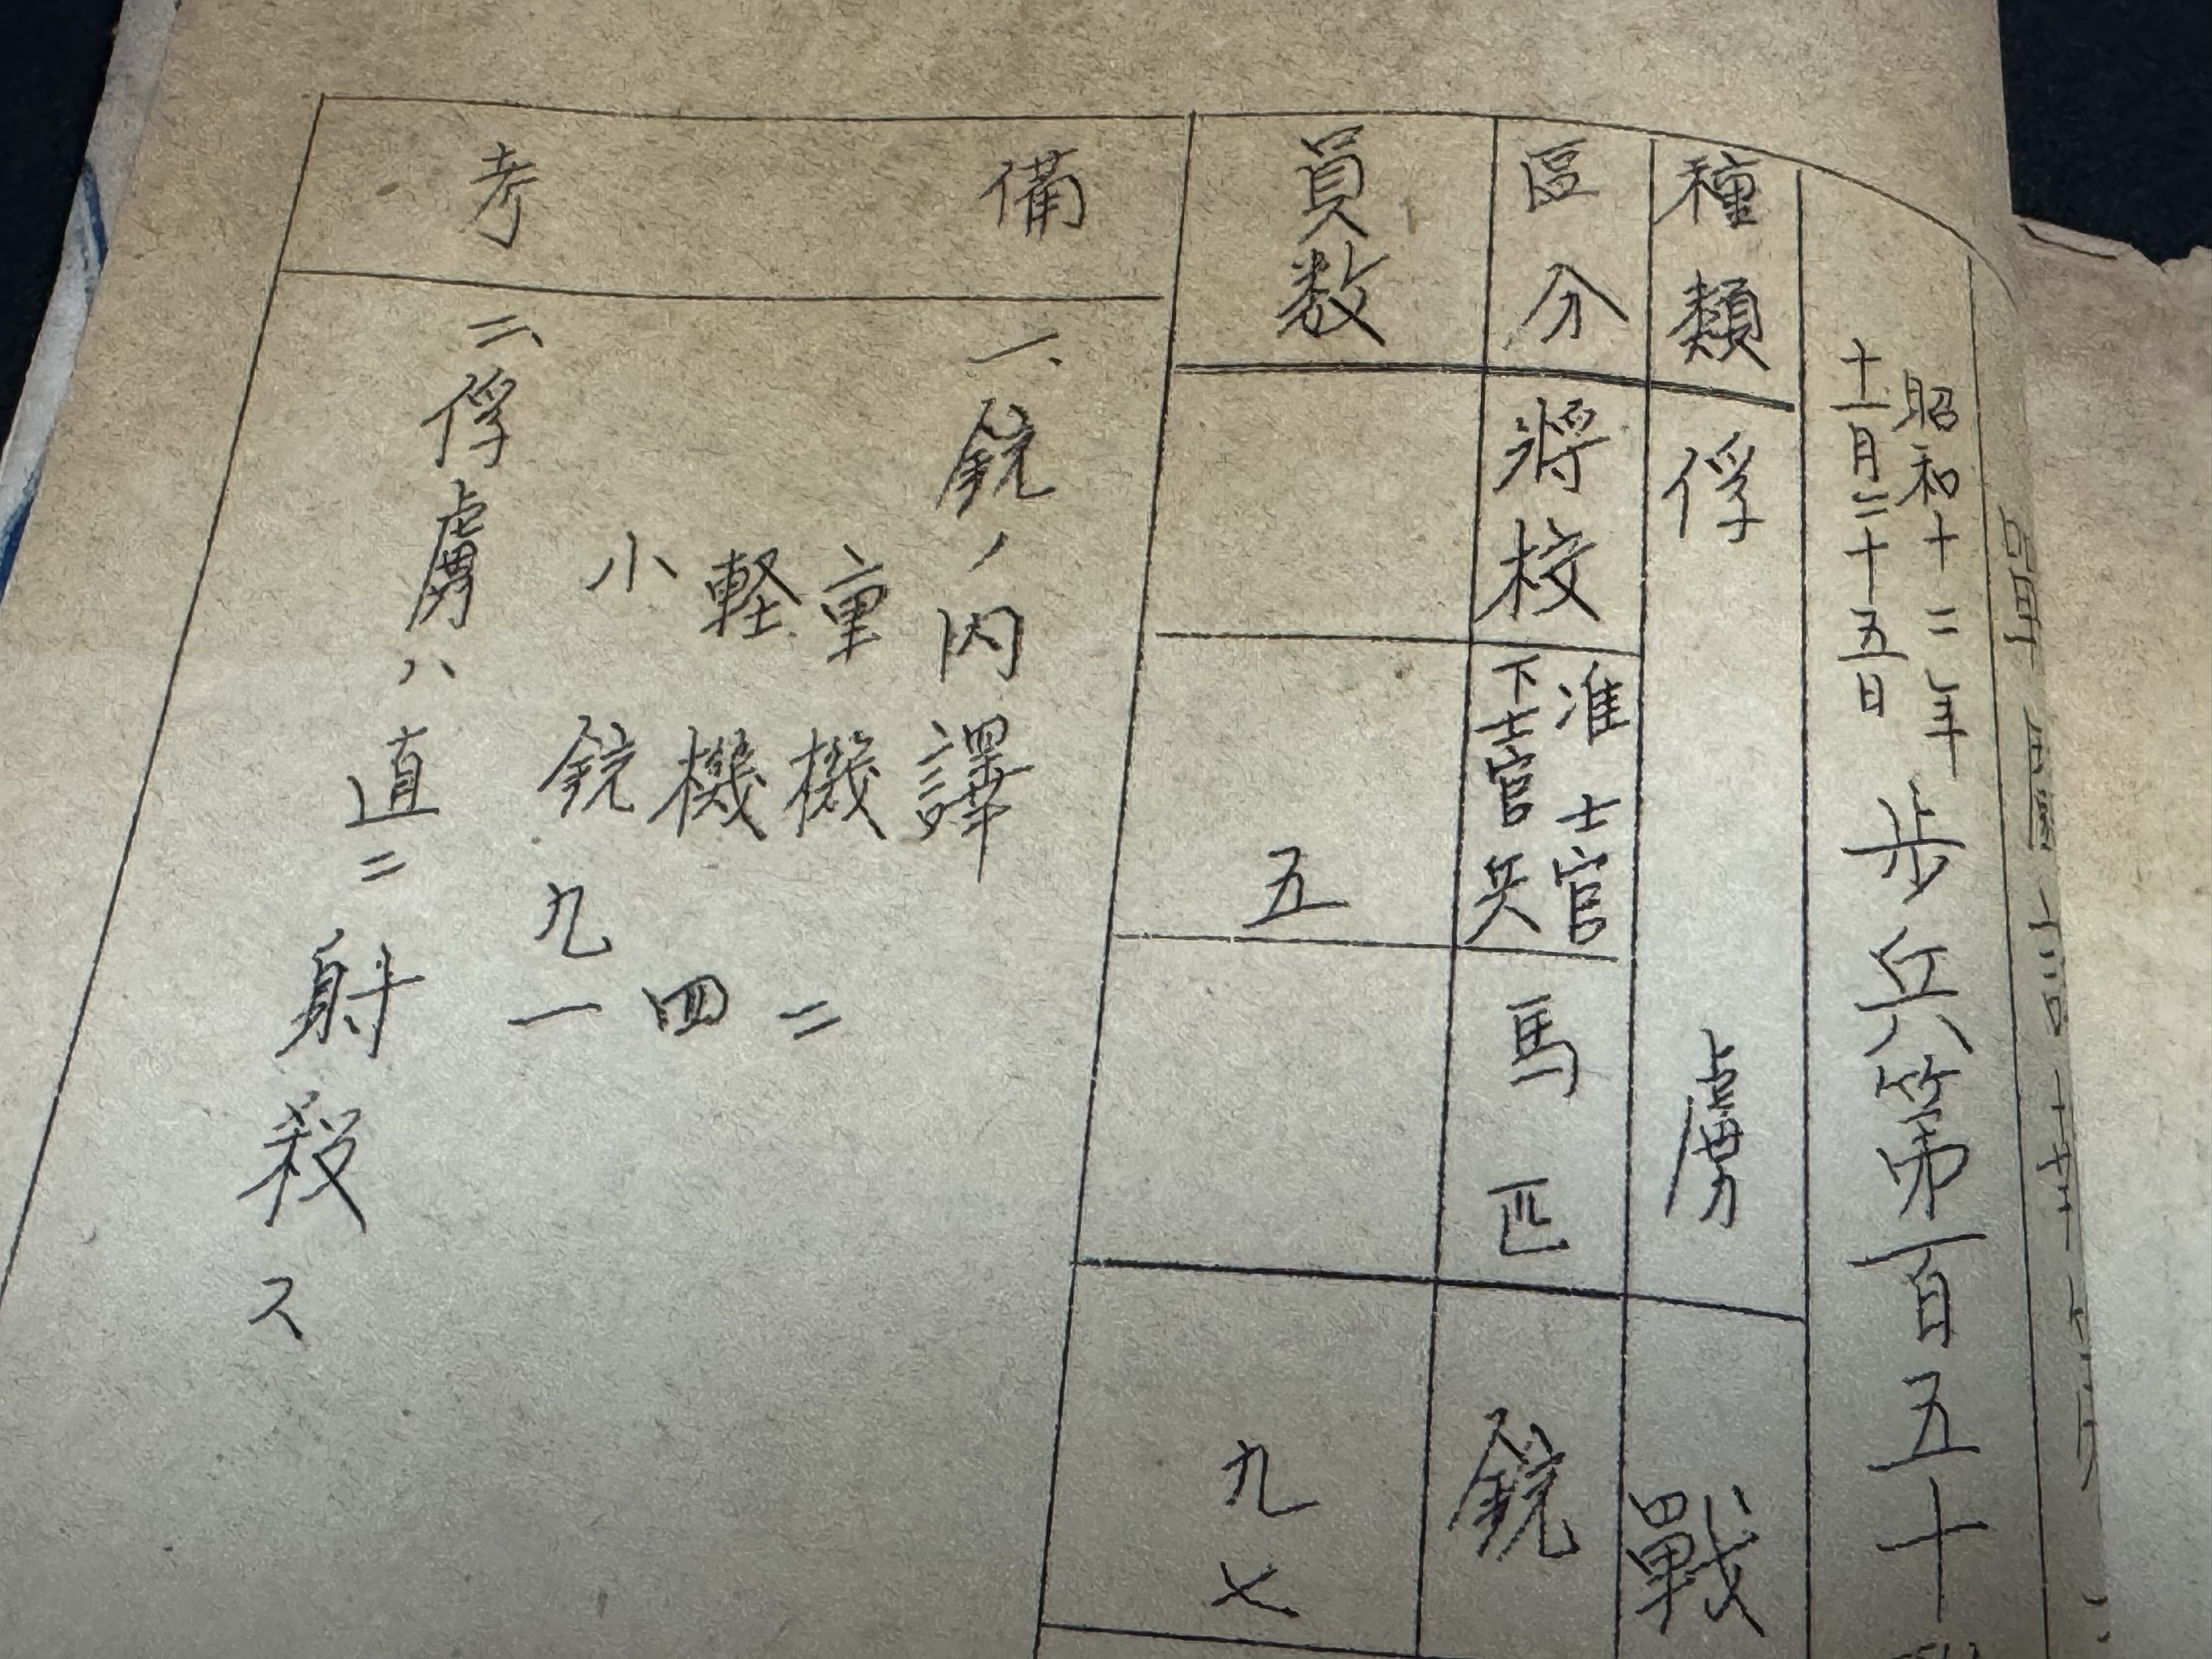 昭和十二年
十一月二十五日
歩兵第百五十
種類 俘虜 戰
區分 將校 准士官
下士官兵 馬匹 銃
員数 五 九七
備考
一、銃ノ内譯
重機 二
軽機 四
小銃 九一
二、俘虜ハ直ニ射殺ス